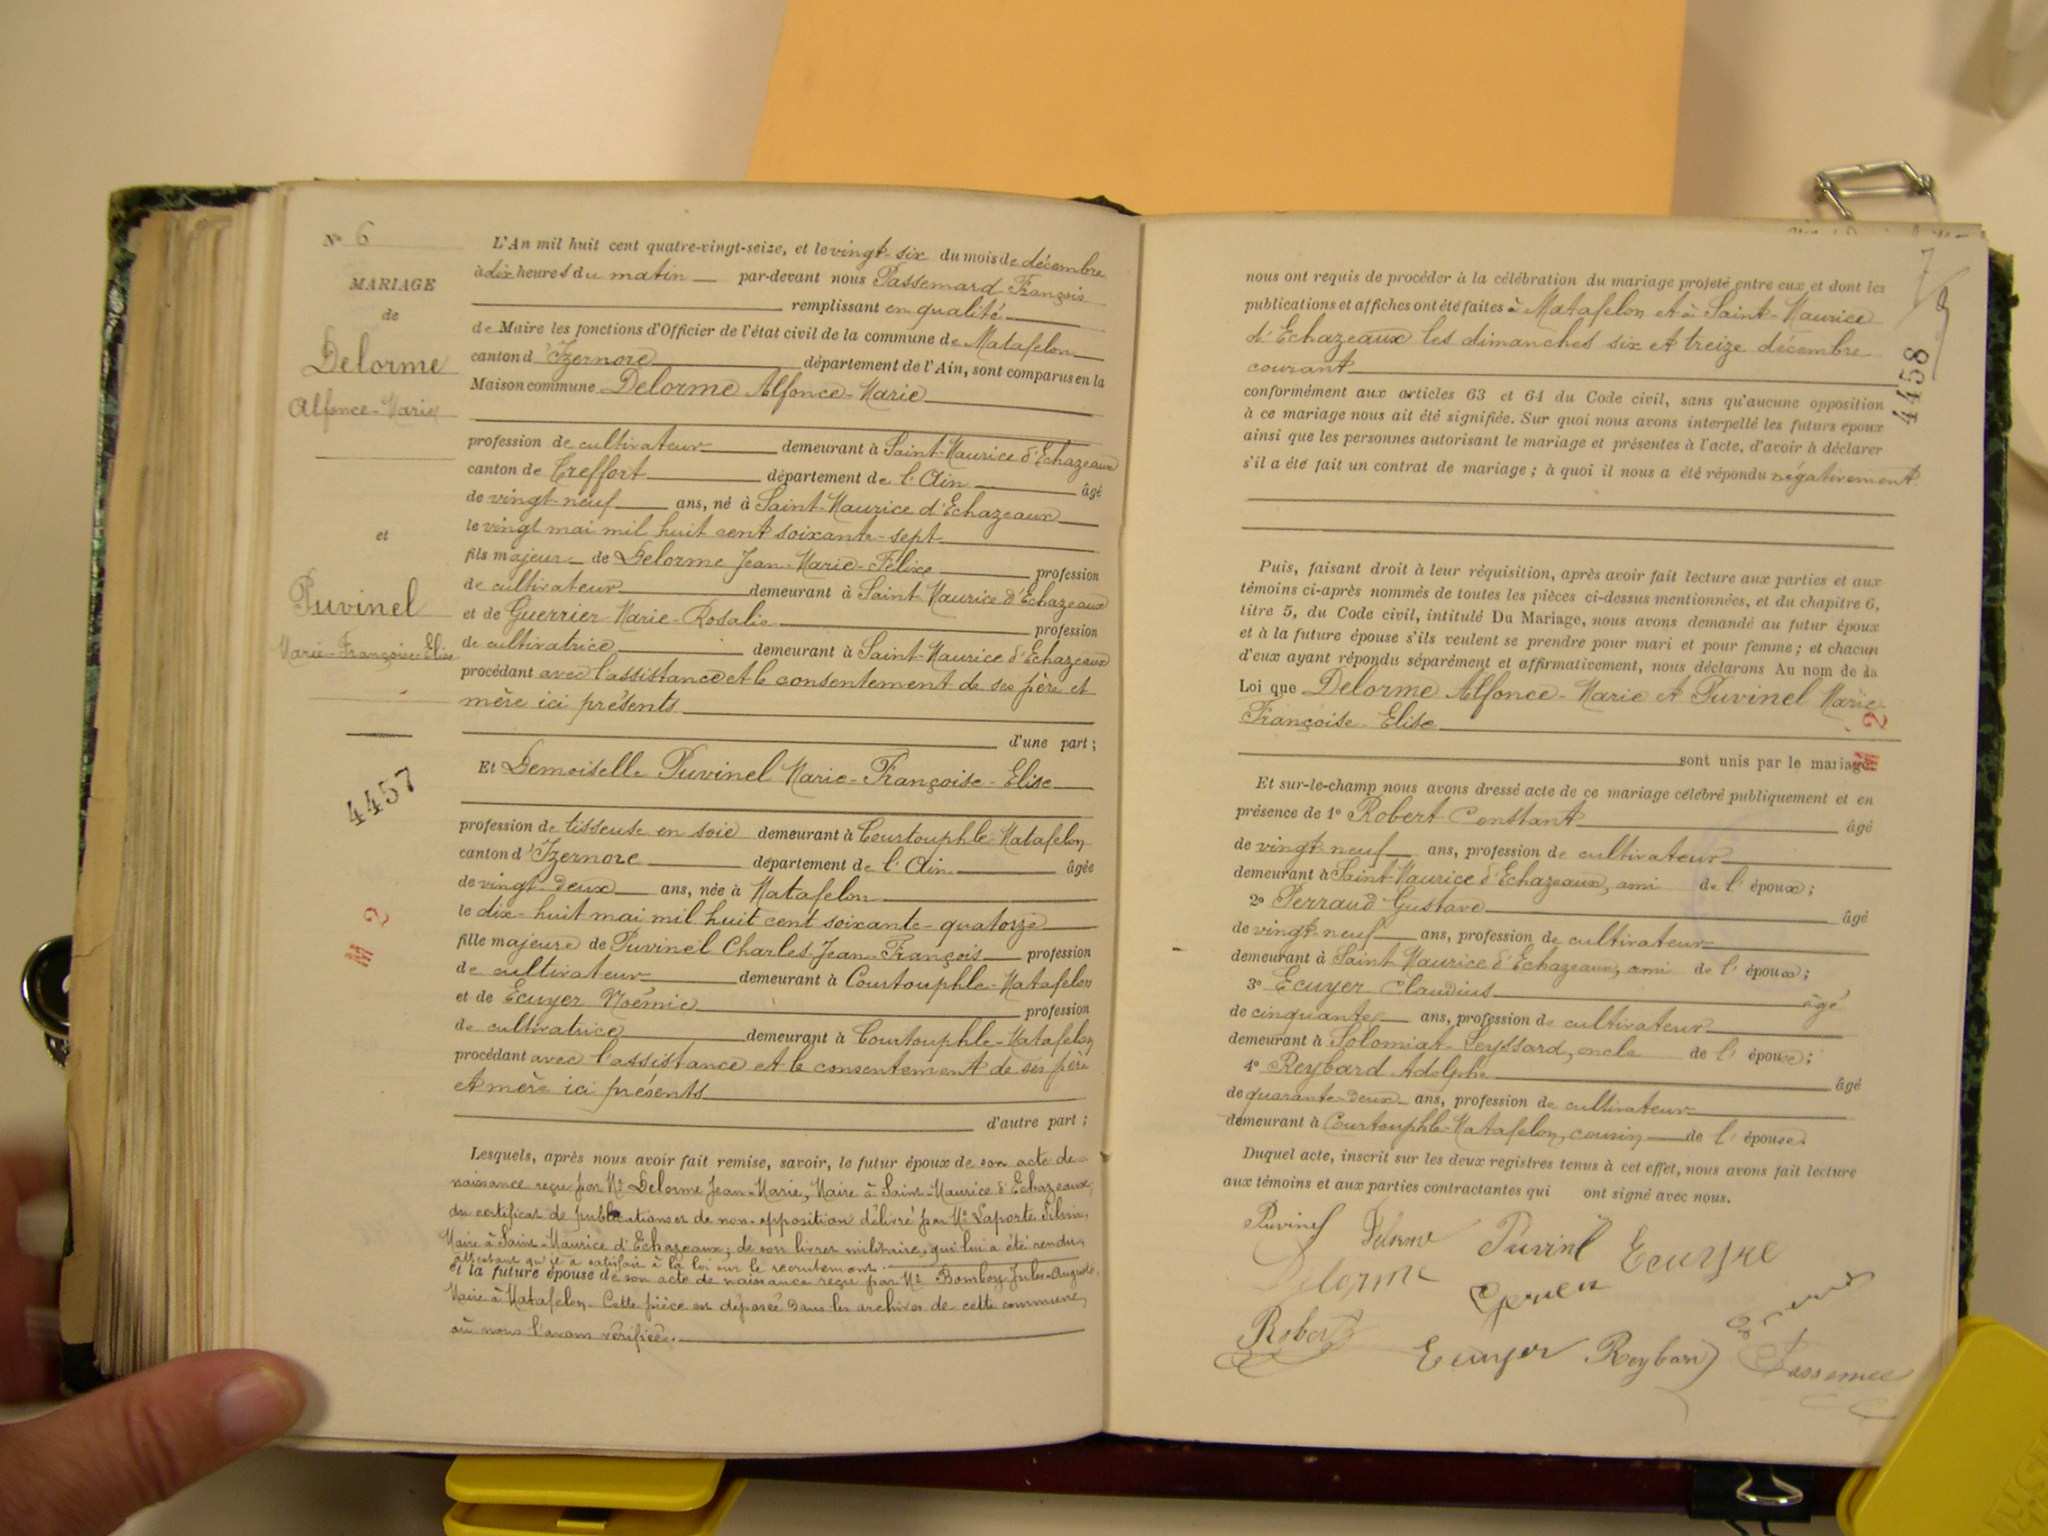 N° 6
MARIAGE
de
Delorme
Alfonce-Marie
et
Puvinel
Marie-Françoise-Elise
4457
M 2
L'An mil huit cent quatre-vingt-seize, et le vingt-six du mois de décembre
à dix heures du matin par-devant nous Passemard François
remplissant en qualité
de Maire les fonctions d'Officier de l'état civil de la commune de Matafelon
canton d'Izernore département de l'Ain, sont comparus en la
Maison commune Delorme Alfonce-Marie
profession de cultivateur demeurant à Saint-Maurice d'Echazeaux
canton de Treffort département de l'Ain âgé
de vingt-neuf ans, né à Saint-Maurice d'Echazeaux
le vingt mai mil huit cent soixante-sept
fils majeur de Delorme Jean-Marie-Félixe profession
de cultivateur demeurant à Saint-Maurice d'Echazeaux
et de Guerrier Marie-Rosalie profession
de cultivatrice demeurant à Saint-Maurice d'Echazeaux
procédant avec l'assistance et le consentement de ses père et
mère ici présents
d'une part;
Et Demoiselle Puvinel Marie-Françoise-Elise
profession de tisseuse en soie demeurant à Courtouphle-Matafelon
canton d'Izernore département de l'Ain âgée
de vingt-deux ans, née à Matafelon
le dix-huit mai mil huit cent soixante-quatorze
fille majeure de Puvinel Charles Jean-François profession
de cultivateur demeurant à Courtouphle-Matafelon
et de Ecuyer Noémie profession
de cultivatrice demeurant à Courtouphle-Matafelon
procédant avec l'assistance et le consentement de ses père
et mère ici présents
d'autre part;
Lesquels, après nous avoir fait remise, savoir, le futur époux de son acte de
naissance reçu par Mr Delorme Jean-Marie, Maire à Saint-Maurice d'Echazeaux,
du certificat de publications et de non-opposition délivré par Mr Laporte
Maire à Saint-Maurice d'Echazeaux; de son livret militaire, qui lui a été rendu,
attestant qu'il a satisfait à la loi sur le recrutement
et la future épouse de son acte de naissance reçu par Mr Bomboy Jules-Auguste,
Maire à Matafelon. Cette pièce est déposée dans les archives de cette commune,
où nous l'avons vérifiée.
7
4458
nous ont requis de procéder à la célébration du mariage projeté entre eux et dont les
publications et affiches ont été faites à Matafelon et à Saint-Maurice
d'Echazeaux les dimanches six et treize décembre
courant
conformément aux articles 63 et 64 du Code civil, sans qu'aucune opposition
à ce mariage nous ait été signifiée. Sur quoi nous avons interpellé les futurs époux
ainsi que les personnes autorisant le mariage et présentes à l'acte, d'avoir à déclarer
s'il a été fait un contrat de mariage; à quoi il nous a été répondu négativement
Puis, faisant droit à leur réquisition, après avoir fait lecture aux parties et aux
témoins ci-après nommés de toutes les pièces ci-dessus mentionnées, et du chapitre 6,
titre 5, du Code civil, intitulé Du Mariage, nous avons demandé au futur époux
et à la future épouse s'ils veulent se prendre pour mari et pour femme; et chacun
d'eux ayant répondu séparément et affirmativement, nous déclarons Au nom de la
Loi que Delorme Alfonce-Marie et Puvinel Marie-
Françoise-Elise
M 2
sont unis par le mariage
Et sur-le-champ nous avons dressé acte de ce mariage célébré publiquement et en
présence de 1° Robert Constant âgé
de vingt-neuf ans, profession de cultivateur
demeurant à Saint-Maurice d'Echazeaux, ami de l'époux;
2° Perraud Gustave âgé
de vingt-neuf ans, profession de cultivateur
demeurant à Saint-Maurice d'Echazeaux, ami de l'époux;
3° Ecuyer Claudius âgé
de cinquante ans, profession de cultivateur
demeurant à Solomiat-Leyssard, oncle de l'épouse;
4° Reybard Adolphe âgé
de quarante-deux ans, profession de cultivateur
demeurant à Courtouphle-Matafelon, cousin de l'épouse.
Duquel acte, inscrit sur les deux registres tenus à cet effet, nous avons fait lecture
aux témoins et aux parties contractantes qui ont signé avec nous.
Puvinel Delorme Puvinel Ecuyre
Delorme
Robert Ecuyer Reybard